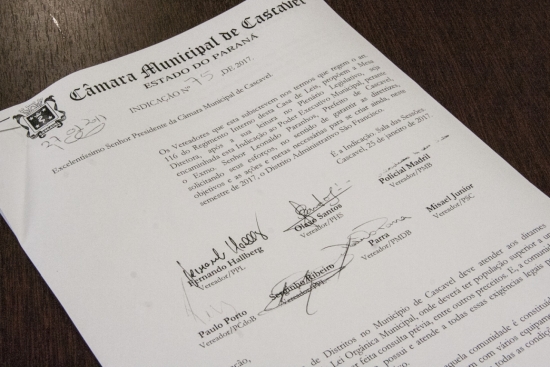 Câmara Municipal de Cascavel
ESTADO DO PARANÁ
INDICAÇÃO Nº 75, DE 2017.
Excelentíssimo Senhor Presidente da Câmara Municipal de Cascavel.
Os Vereadores que esta subscrevem nos termos que regem o art.
116 do Regimento Interno desta Casa de Leis, propõem a Mesa
Diretora, após a sua leitura no Plenário Legislativo, seja
encaminhada esta Indicação ao Poder Executivo Municipal, perante
o Exmo. Senhor Leonaldo Paranhos, Prefeito de Cascavel,
solicitando seus esforços, no sentido de garantir as diretrizes,
objetivos e as ações e metas necessárias para se criar ainda, neste
semestre de 2017, o Distrito Administrativo São Francisco.
É a Indicação. Sala das Sessões
Cascavel, 25 de janeiro de 2017.
Fernando Hallberg
Vereador/PPL
Olavo Santos
Vereador/PHS
Policial Madril
Vereador/PMB
Paulo Porto
Vereador/PCdoB
Serginho Ribeiro
Parra
Vereador/PMDB
Misael Junior
Vereador/PSC
de Distritos no Município de Cascavel deve atender aos ditames
Lei Orgânica Municipal, onde deverá ter população superior a
ser feita consulta prévia, entre outros preceitos. E, a
possui e atende a todas essas exigências legais
comunidade é
com vários